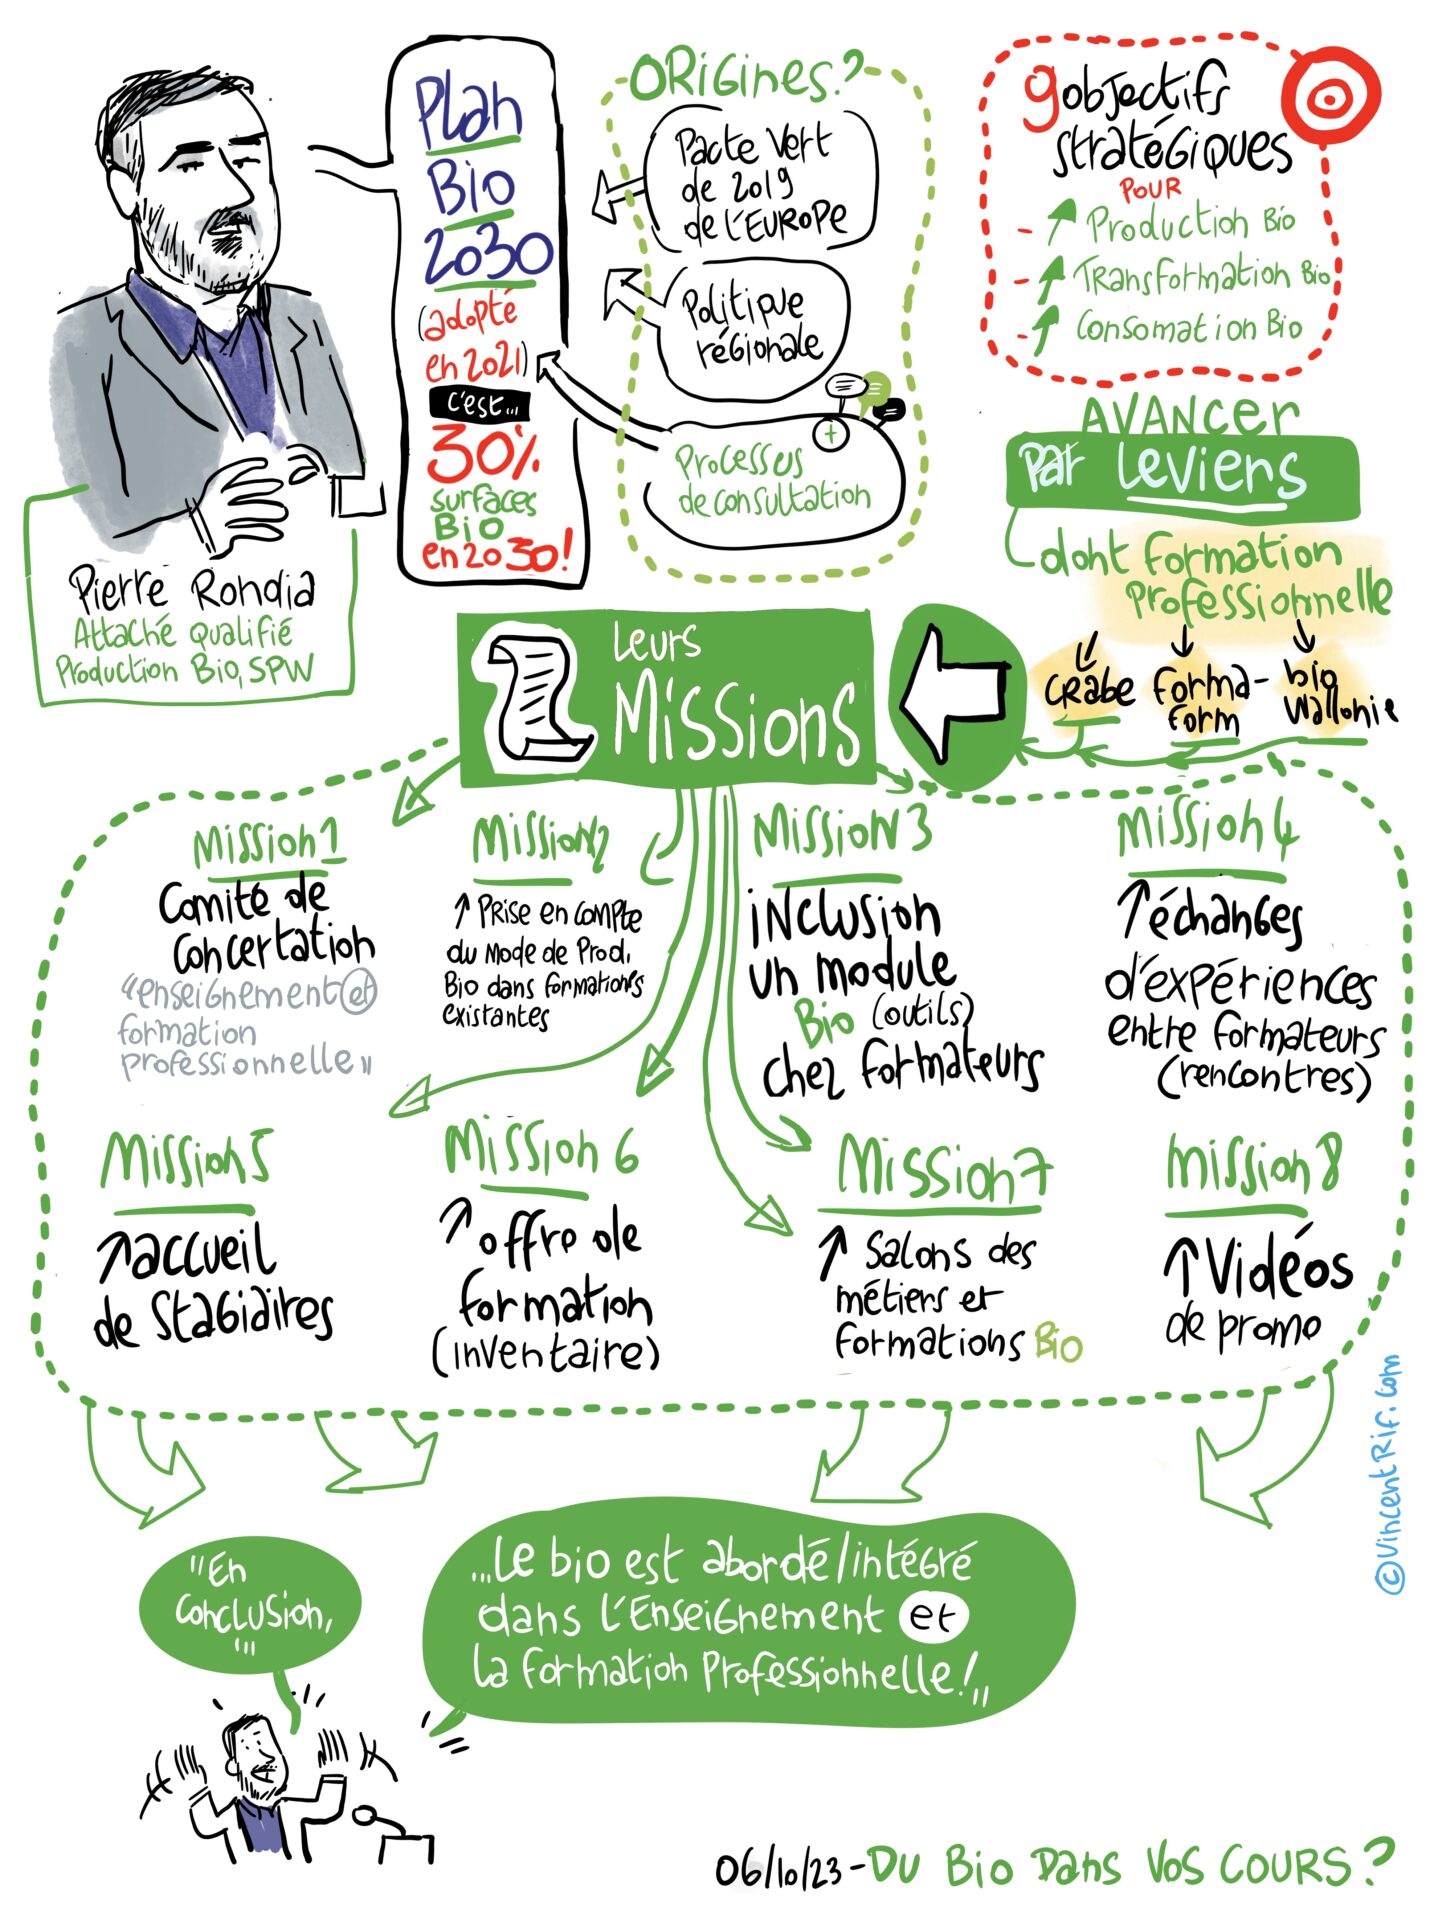 Plan
Bio
2030
(adopté
en 2021)
c'est...
30%
surfaces
Bio
en 2030!
Origines?
Pacte Vert
de 2019
de l'Europe
Politique
régionale
+
Processus
de consultation
9 objectifs
stratégiques
pour
- Production Bio
- Transformation Bio
- Consomation Bio
Avancer
Par Leviers
dont formation
Professionnelle
Crabe
Forma-
form
bio
wallonie
Pierre Rondia
Attaché Qualifié
Production Bio, SPW
Leurs
Missions
Mission 1
Comité de
Concertation
"enseignement et
formation
professionnelle"
Mission 2
↑ Prise en compte
du Mode de Prod.
Bio dans formations
existantes
Mission 3
inclusion
un module
Bio (outils)
chez formateurs
Mission 4
↑ échanges
d'expériences
entre formateurs
(rencontres)
Mission 5
↑ accueil
de stagiaires
Mission 6
↑ offre de
formation
(inventaire)
Mission 7
↑ Salons des
métiers et
formations Bio
Mission 8
↑ Vidéos
de promo
©VincentRif.com
"En
Conclusion,
...Le bio est abordé/intégré
dans l'Enseignement et
la formation Professionnelle!"
06/10/23 - Du Bio Dans Vos Cours?